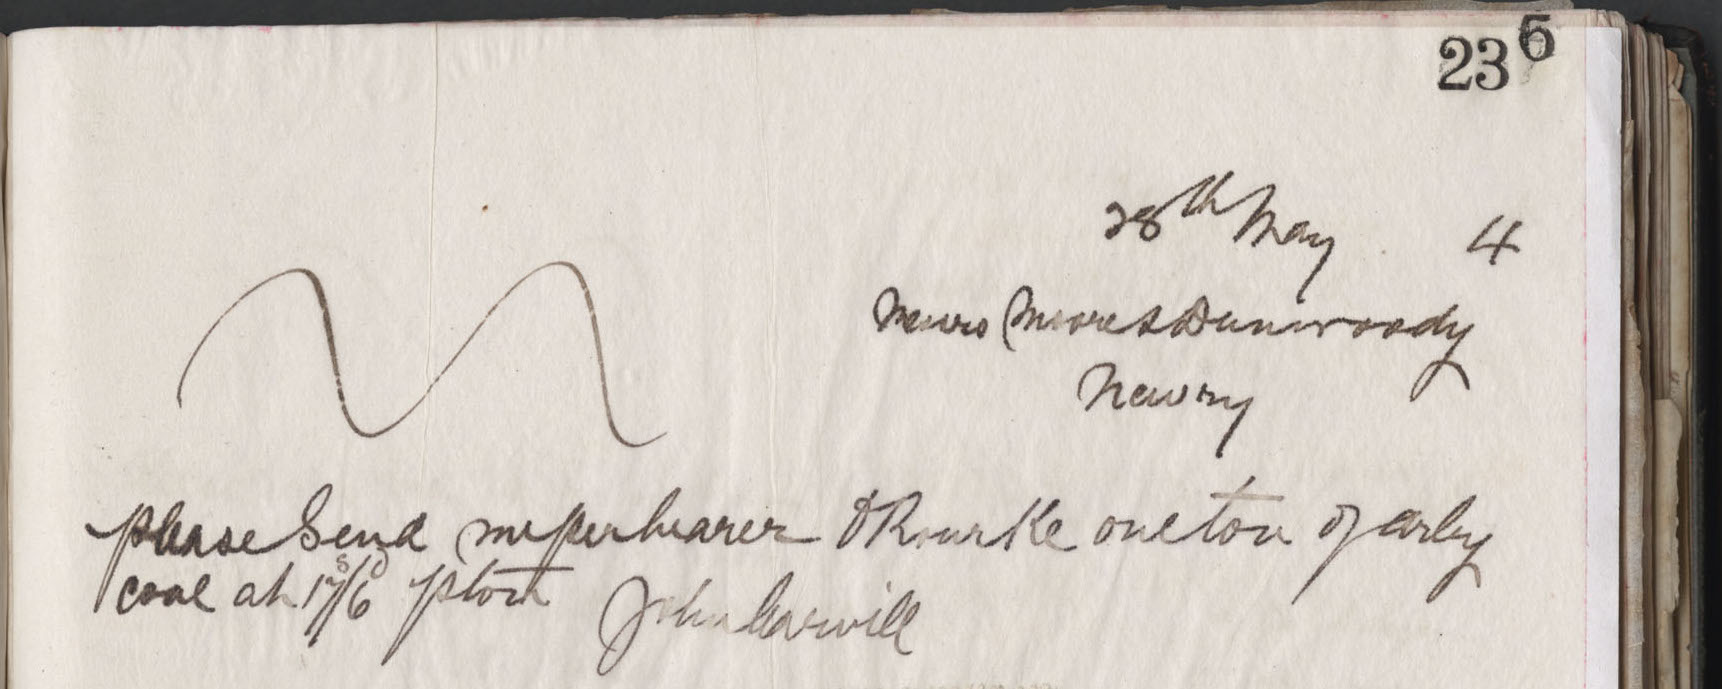 236
28th May 4
Messrs Moore & Dunwoody
Newry
please Send me per bearer O Rourke one ton of arley
coal at 17s/6d p ton John Carvill